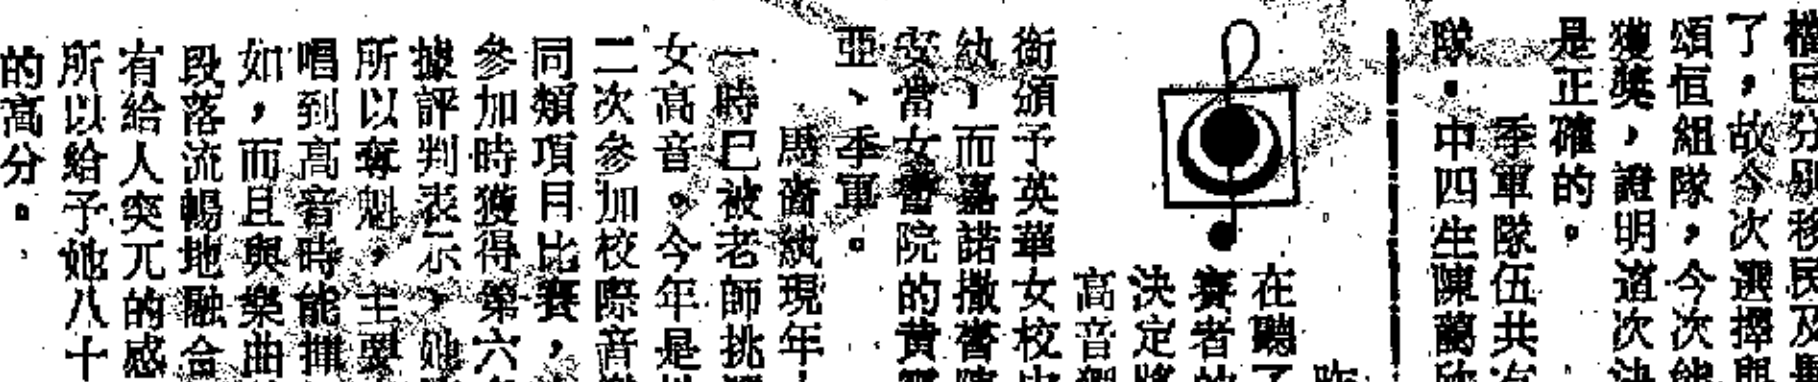 機已分別移民及
了，故今次選擇與
頌恒組隊，今次能
獲獎，證明這次決
是正確的。
季軍隊伍共有
隊。中四生陳蘭欣
昨
在聽了
賽者的
決定將
高音獨
銜頒予英華女校中
紈，而嘉諾撒書院
安當女書院的黃
亞、季軍。
馬崙紈現年十
時已被老師挑選
女高音。今年是她
二次參加校際音樂
同類項目比賽，
參加時獲得第六名
據評判表示，她
所以奪魁，主要
唱到高音時能揮
如，而且與樂曲
段落流暢地融合
有給人突兀的感
所以給予她八十
的高分。